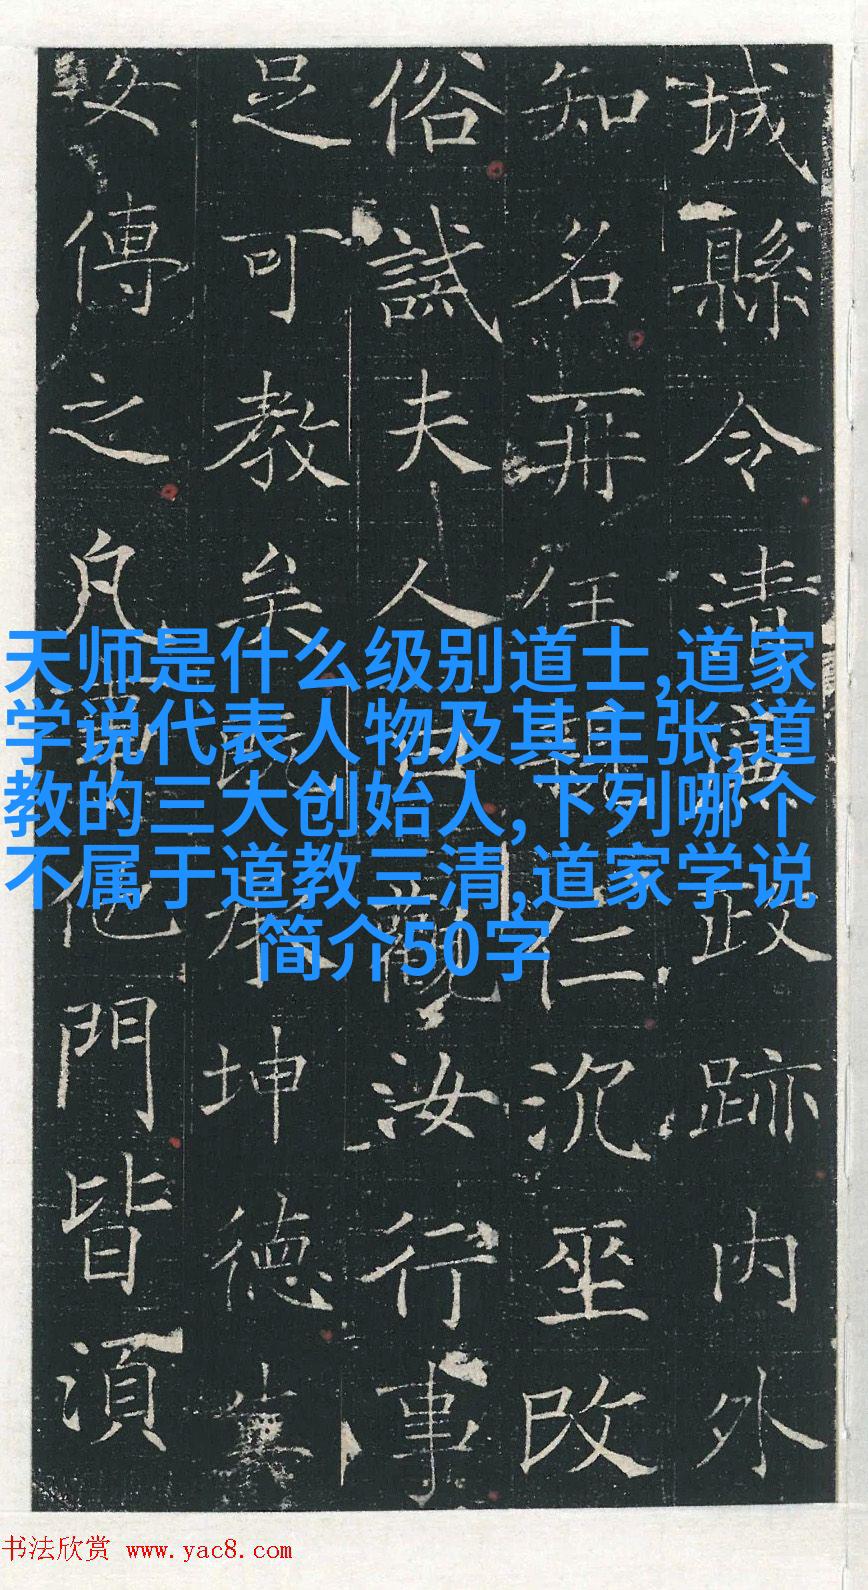 城縣令清廉政跡内外
知名再任仁沉坐改
俗試夫人觀汝行事
足可教矣坤德冀
傳之凡他門皆須
天师是什么级别道士,道家
学说代表人物及其主张,道
教的三大创始人,下列哪个
不属于道教三清,道家学说
简介50字
书法欣赏 www.yac8.com